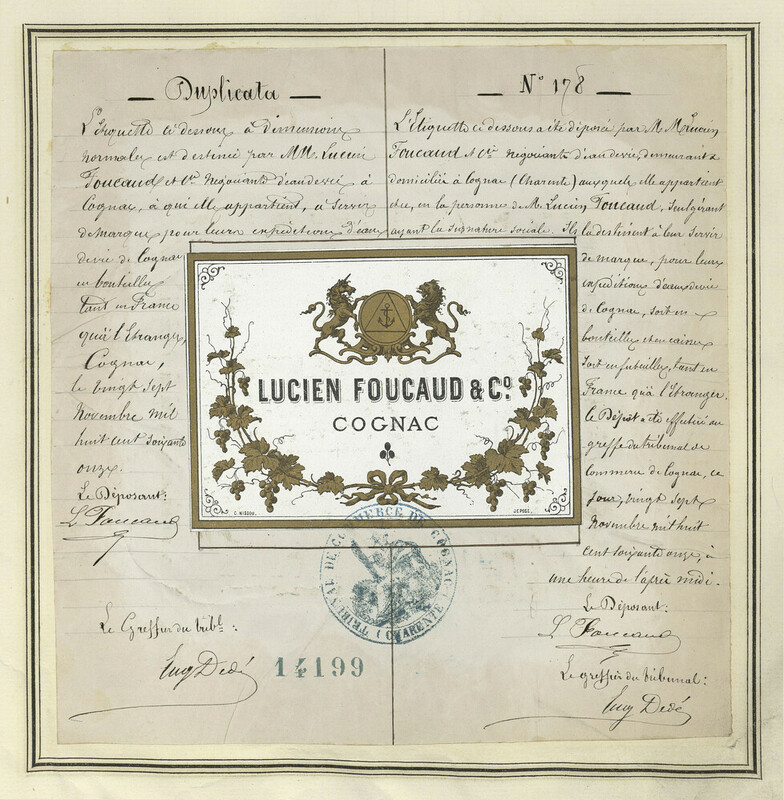 Duplicata
L'Etiquette ci dessous à dimensions
normales est destinée par MM. Lucien
Foucaud et Cie Négociants d'eau de vie à
Cognac, à qui elle appartient, à servir
de marque pour leurs expéditions d'eaux
de vie de Cognac
en bouteilles
tant en France
qu'à l'Etranger,
Cognac,
le vingt sept
Novembre mil
huit cent soixante
onze.
Le Déposant:
L. Foucaud
Le Greffier du tribl:
Eug Dedé
N° 178
L'Etiquette ci dessous a été déposée par M.M. Lucien
Foucaud & Cie Négociants d'eau de vie, demeurant &
domiciliés à Cognac (Charente) auxquels elle appartient
en la personne de M. Lucien Foucaud, seul gérant
ayant la signature sociale. Ils la destinent à leur servir
de marque, pour leurs
expéditions d'eaux de vie
de Cognac, soit en
bouteilles et en caisses
soit en futailles, tant en
France qu'à l'Etranger.
Le Dépôt a été effectué au
greffe du tribunal de
Commerce de Cognac, ce
jour, vingt sept
Novembre mil huit
cent soixante onze, à
une heure de l'après midi.
Le Déposant:
L. Foucaud
Le greffier du tribunal:
Eug Dedé
LUCIEN FOUCAUD & Co.
COGNAC
DÉPOSÉ
TRIBUNAL DE COMMERCE DE COGNAC
(CHARENTE)
14199